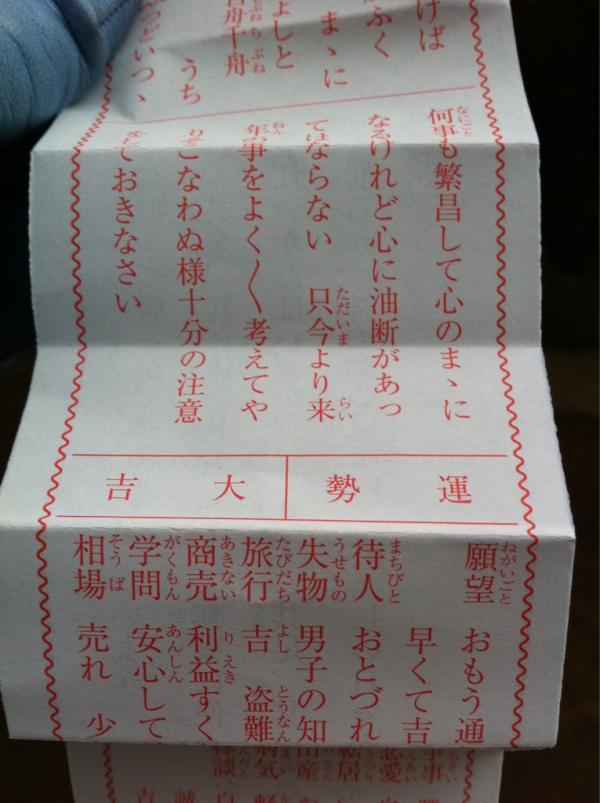 けば
ふく
まゝに
よしと
舟千舟
うち
つどいつゝ
何事も繁昌して心のまゝに
なるけれど心に油断があっ
てはならない 只今より来
年事をよく〱考えてや
りそこなわぬ様十分の注意
をしておきなさい
運勢 大吉
願望 おもう通
早くて吉
待人 おとづれ
失物 男子の知
旅行 吉 盗難
商売 利益すく
学問 安心して
相場 売れ 少